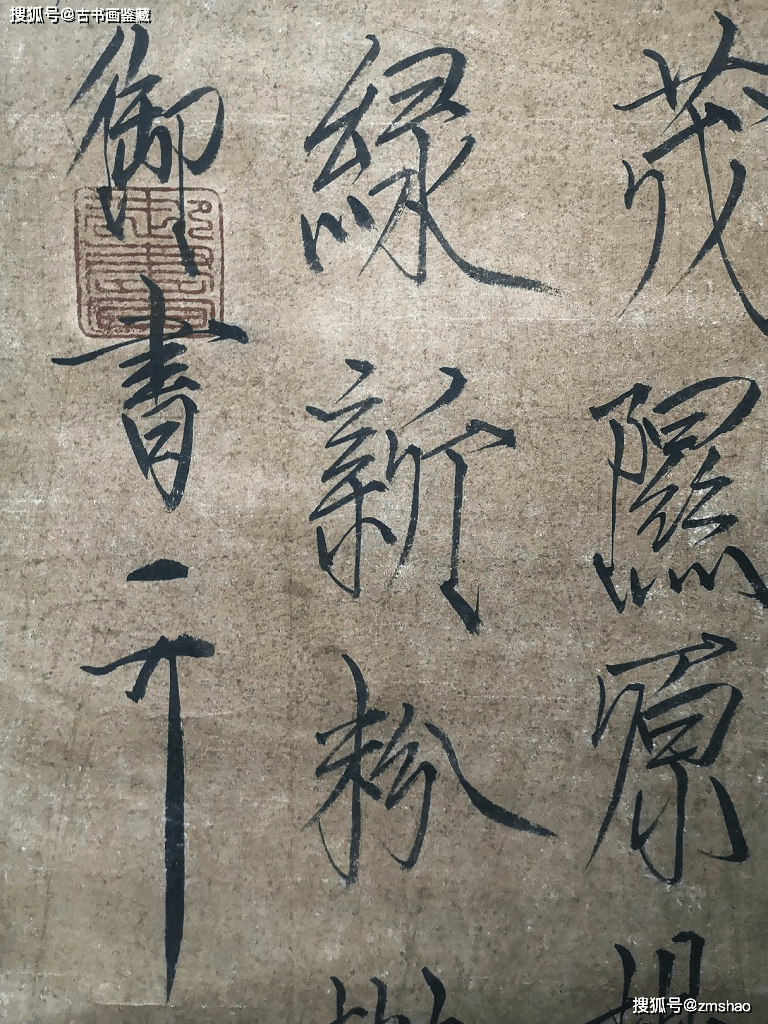 搜狐号@古书画鉴藏
茂隰原
緑新粉
御書
搜狐号@zmshao